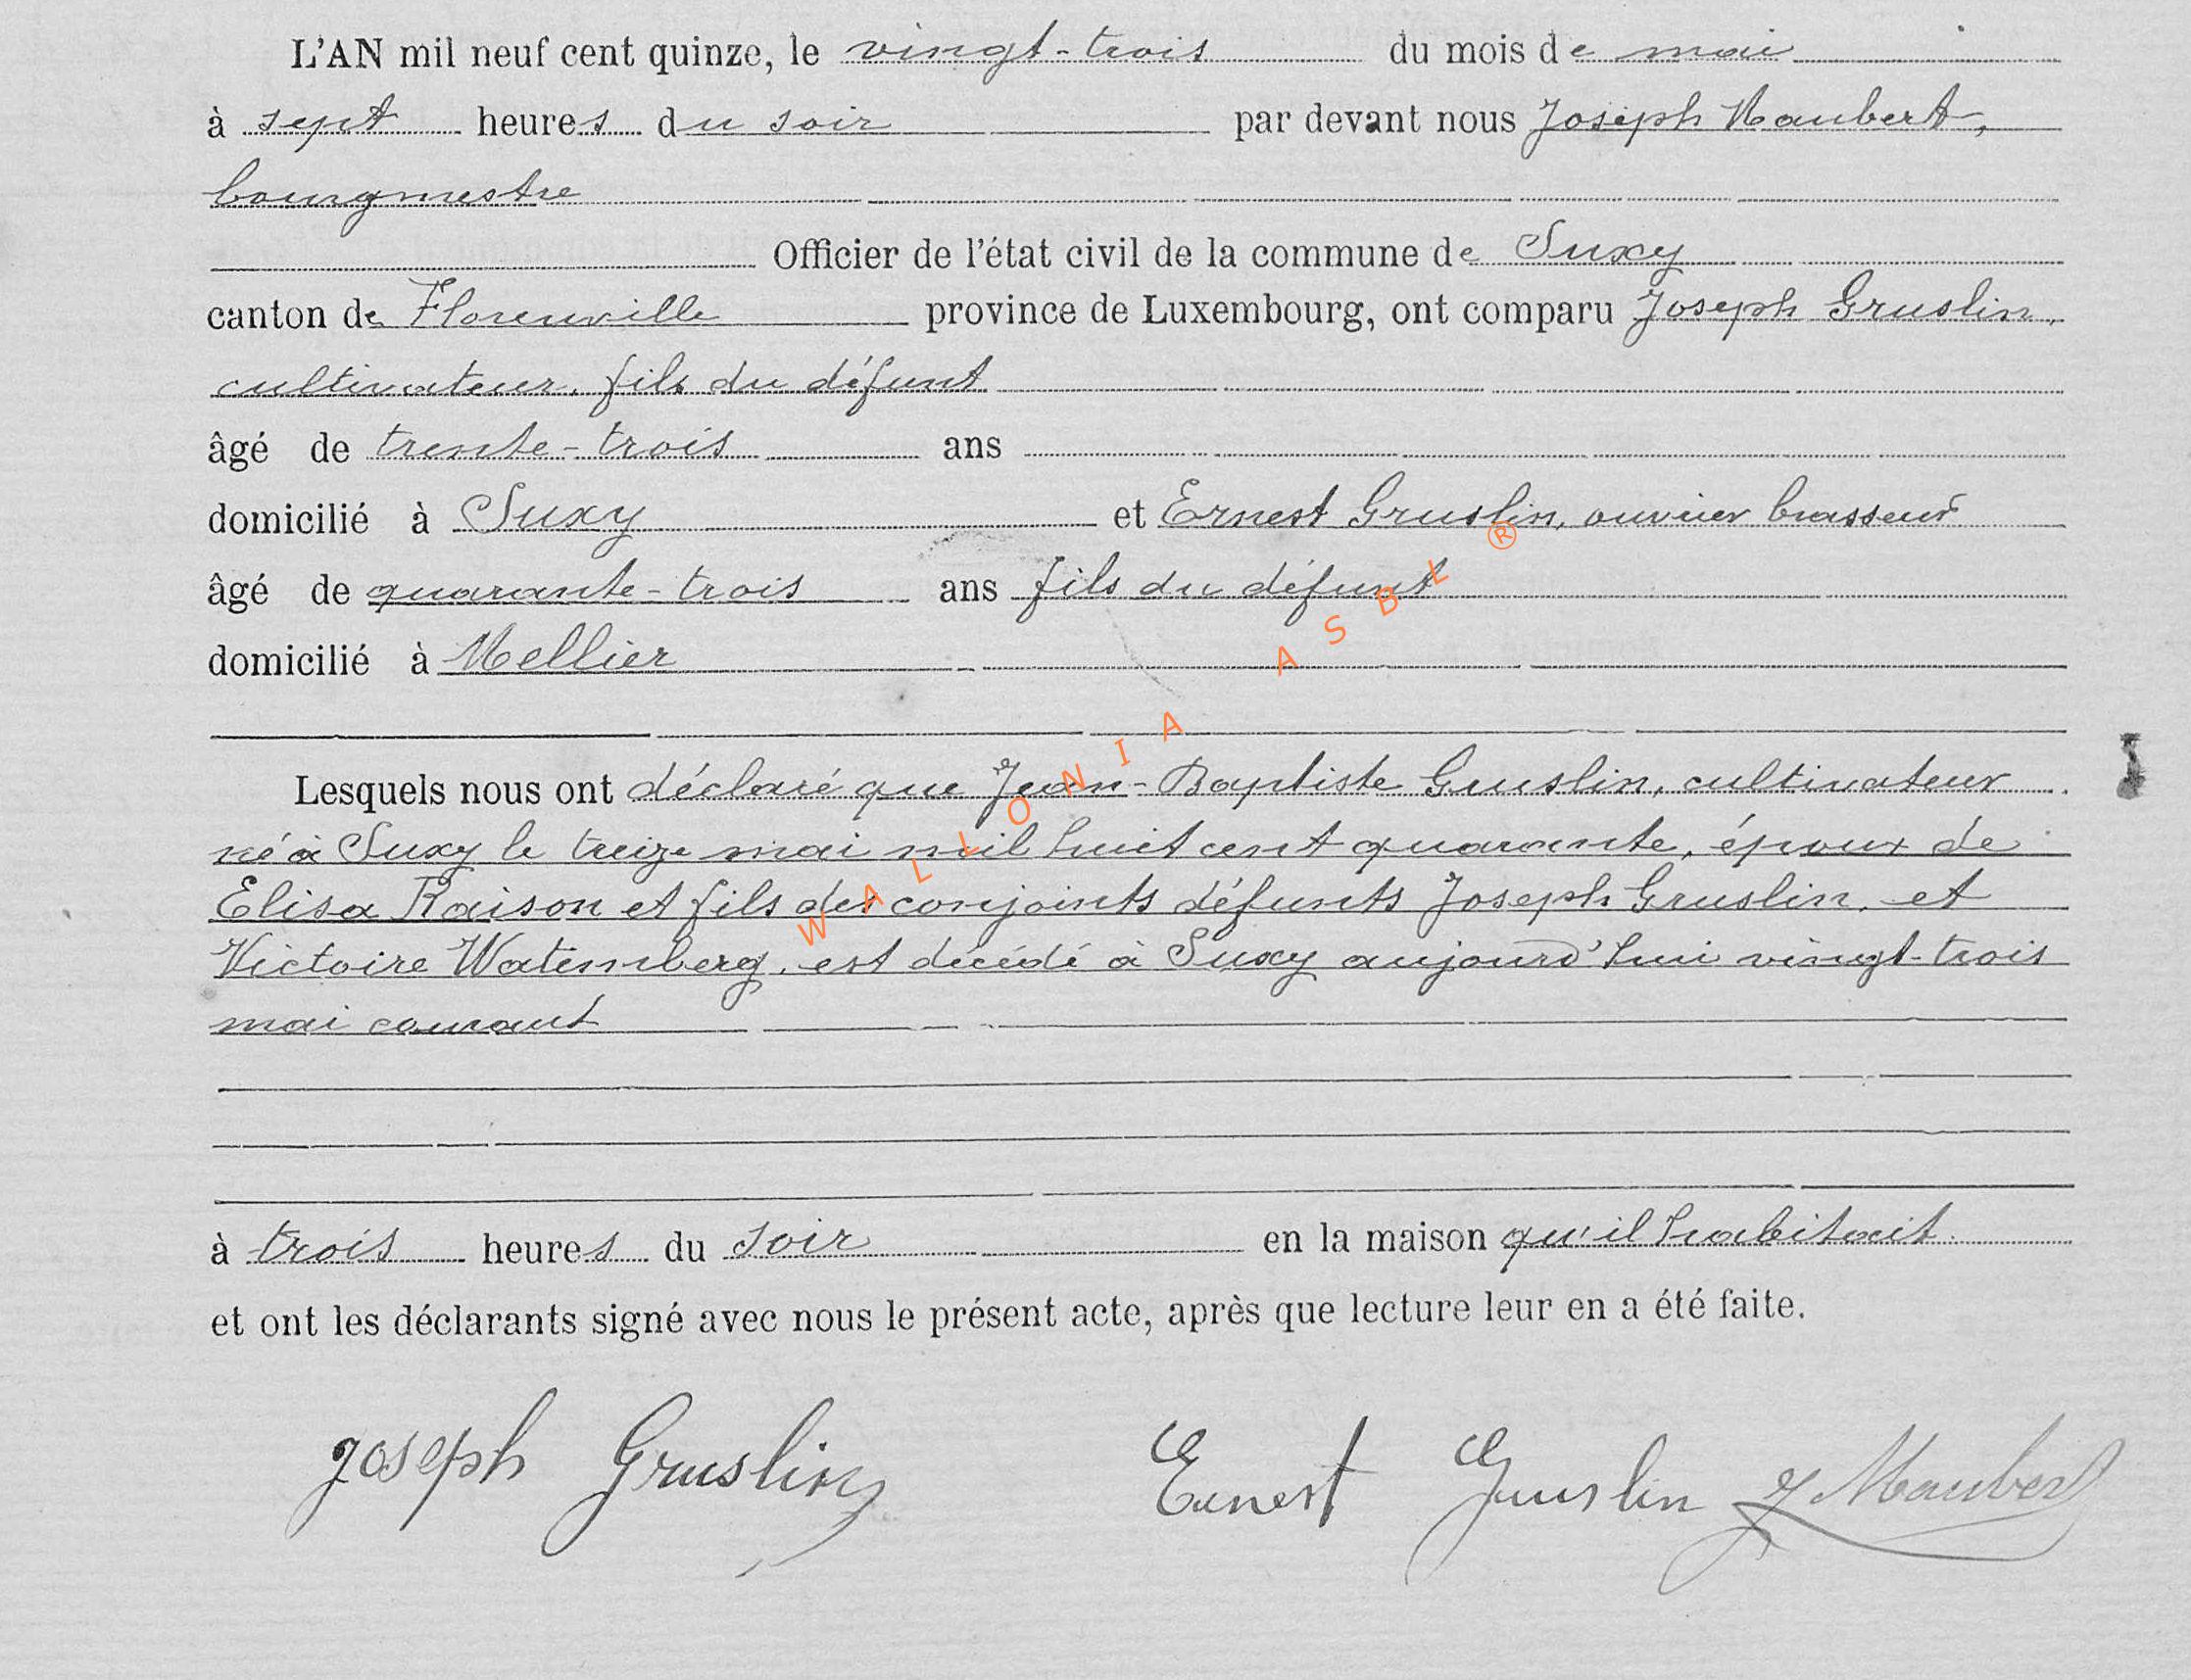 L'AN mil neuf cent quinze, le vingt-trois du mois de mai
à sept heures du soir par devant nous Joseph Maubert,
bourgmestre
Officier de l'état civil de la commune de Suxy
canton de Florenville province de Luxembourg, ont comparu Joseph Gruslin,
cultivateur, fils du défunt
âgé de trente-trois ans
domicilié à Suxy et Ernest Gruslin, ouvrier brasseur
âgé de quarante-trois ans fils du défunt
domicilié à Mellier
Lesquels nous ont déclaré que Jean-Baptiste Gruslin, cultivateur
né à Suxy le treize mai mil huit cent quarante, époux de
Elisa Raison et fils des conjoints défunts Joseph Gruslin, et
Victoire Watemberg, est décédé à Suxy aujourd'hui vingt-trois
mai courant
à trois heures du soir en la maison qu'il habitait.
et ont les déclarants signé avec nous le présent acte, après que lecture leur en a été faite.
Joseph Gruslin Ernest Gruslin J Maubert
WALLONIA ASBL ®